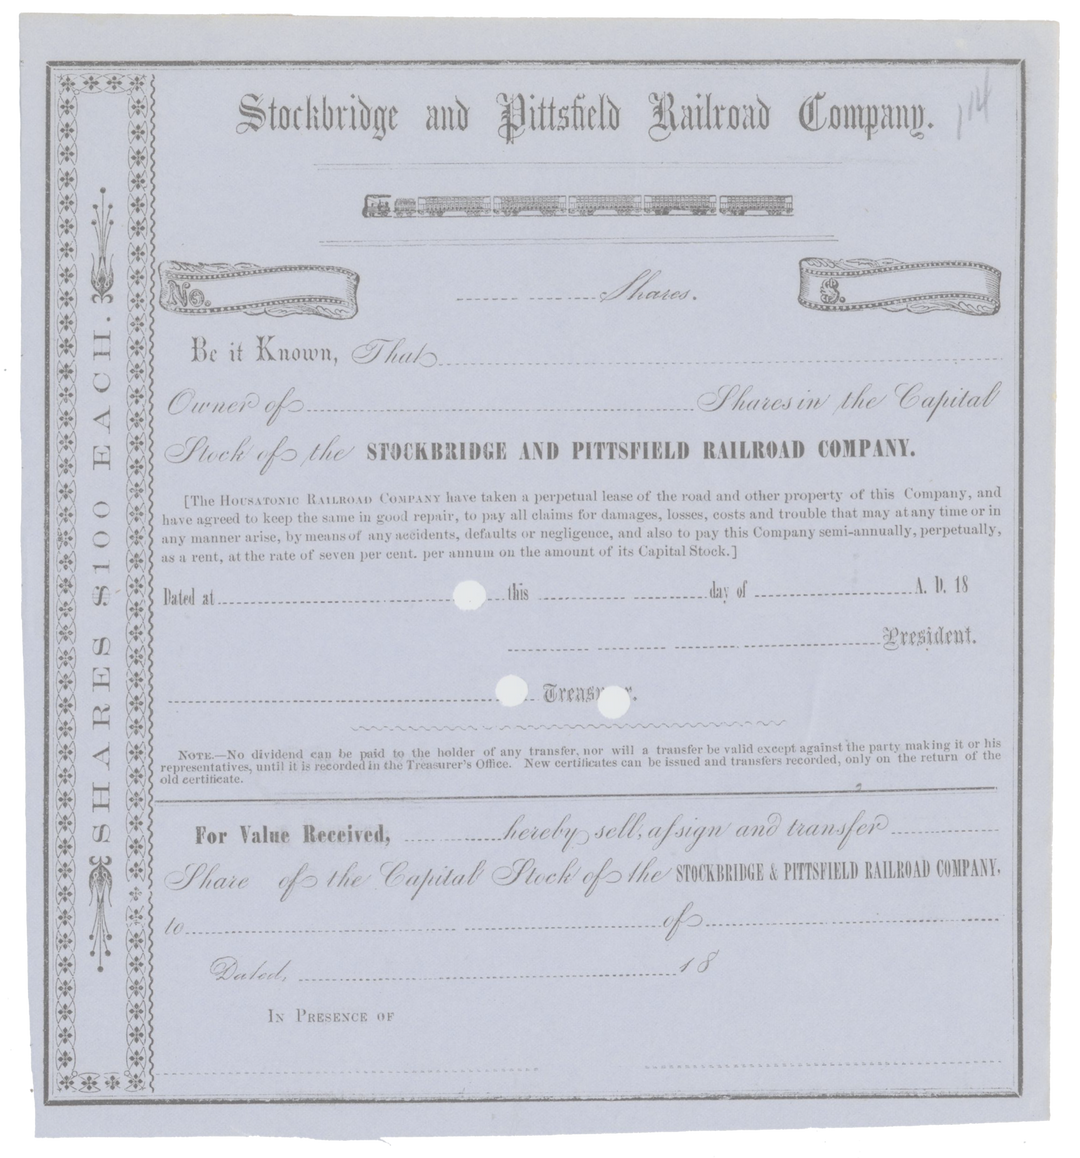 Stockbridge and Pittsfield Railroad Company.
114
No.
Shares.
$.
Be it Known, That
Owner of Shares in the Capital
Stock of the STOCKBRIDGE AND PITTSFIELD RAILROAD COMPANY.
[The Housatonic Railroad Company have taken a perpetual lease of the road and other property of this Company, and
have agreed to keep the same in good repair, to pay all claims for damages, losses, costs and trouble that may at any time or in
any manner arise, by means of any accidents, defaults or negligence, and also to pay this Company semi-annually, perpetually,
as a rent, at the rate of seven per cent. per annum on the amount of its Capital Stock.]
Dated at this day of A. D. 18
President.
Treasurer.
Note.—No dividend can be paid to the holder of any transfer, nor will a transfer be valid except against the party making it or his
representatives, until it is recorded in the Treasurer's Office. New certificates can be issued and transfers recorded, only on the return of the
old certificate.
For Value Received, hereby sell, assign and transfer
Share of the Capital Stock of the STOCKBRIDGE & PITTSFIELD RAILROAD COMPANY,
to of
Dated, 18
In Presence of
SHARES $100 EACH.